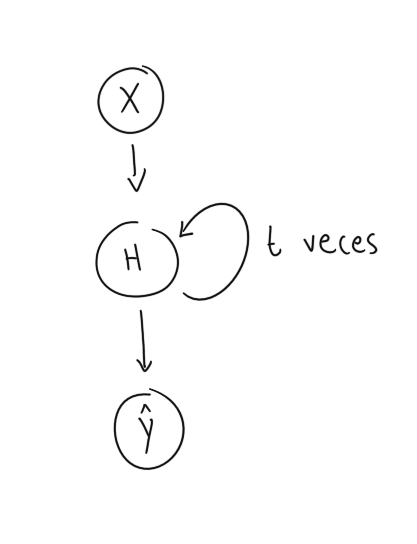 X
H
t veces
ŷ